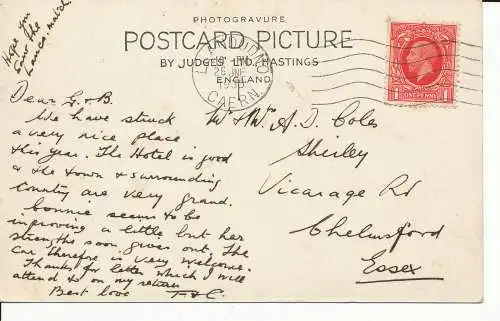 Hope you
saw the
Lancs. match
PHOTOGRAVURE
POSTCARD PICTURE
BY JUDGES' LTD., HASTINGS
ENGLAND
LLANDUDNO
CAERN.
POSTAGE
REVENUE
1 ONE PENNY 1
Dear G. & B.
We have struck
a very nice place
this year. The Hotel is good
& the town & surrounding
country are very grand.
Connie seems to be
improving a little but her
strength soon gives out. The
car therefore is very welcome.
Thanks for letter which I will
attend to on my return
Best love F & C.
Mr & Mrs A. D. Coles
Shirley
Vicarage Rd
Chelmsford
Essex